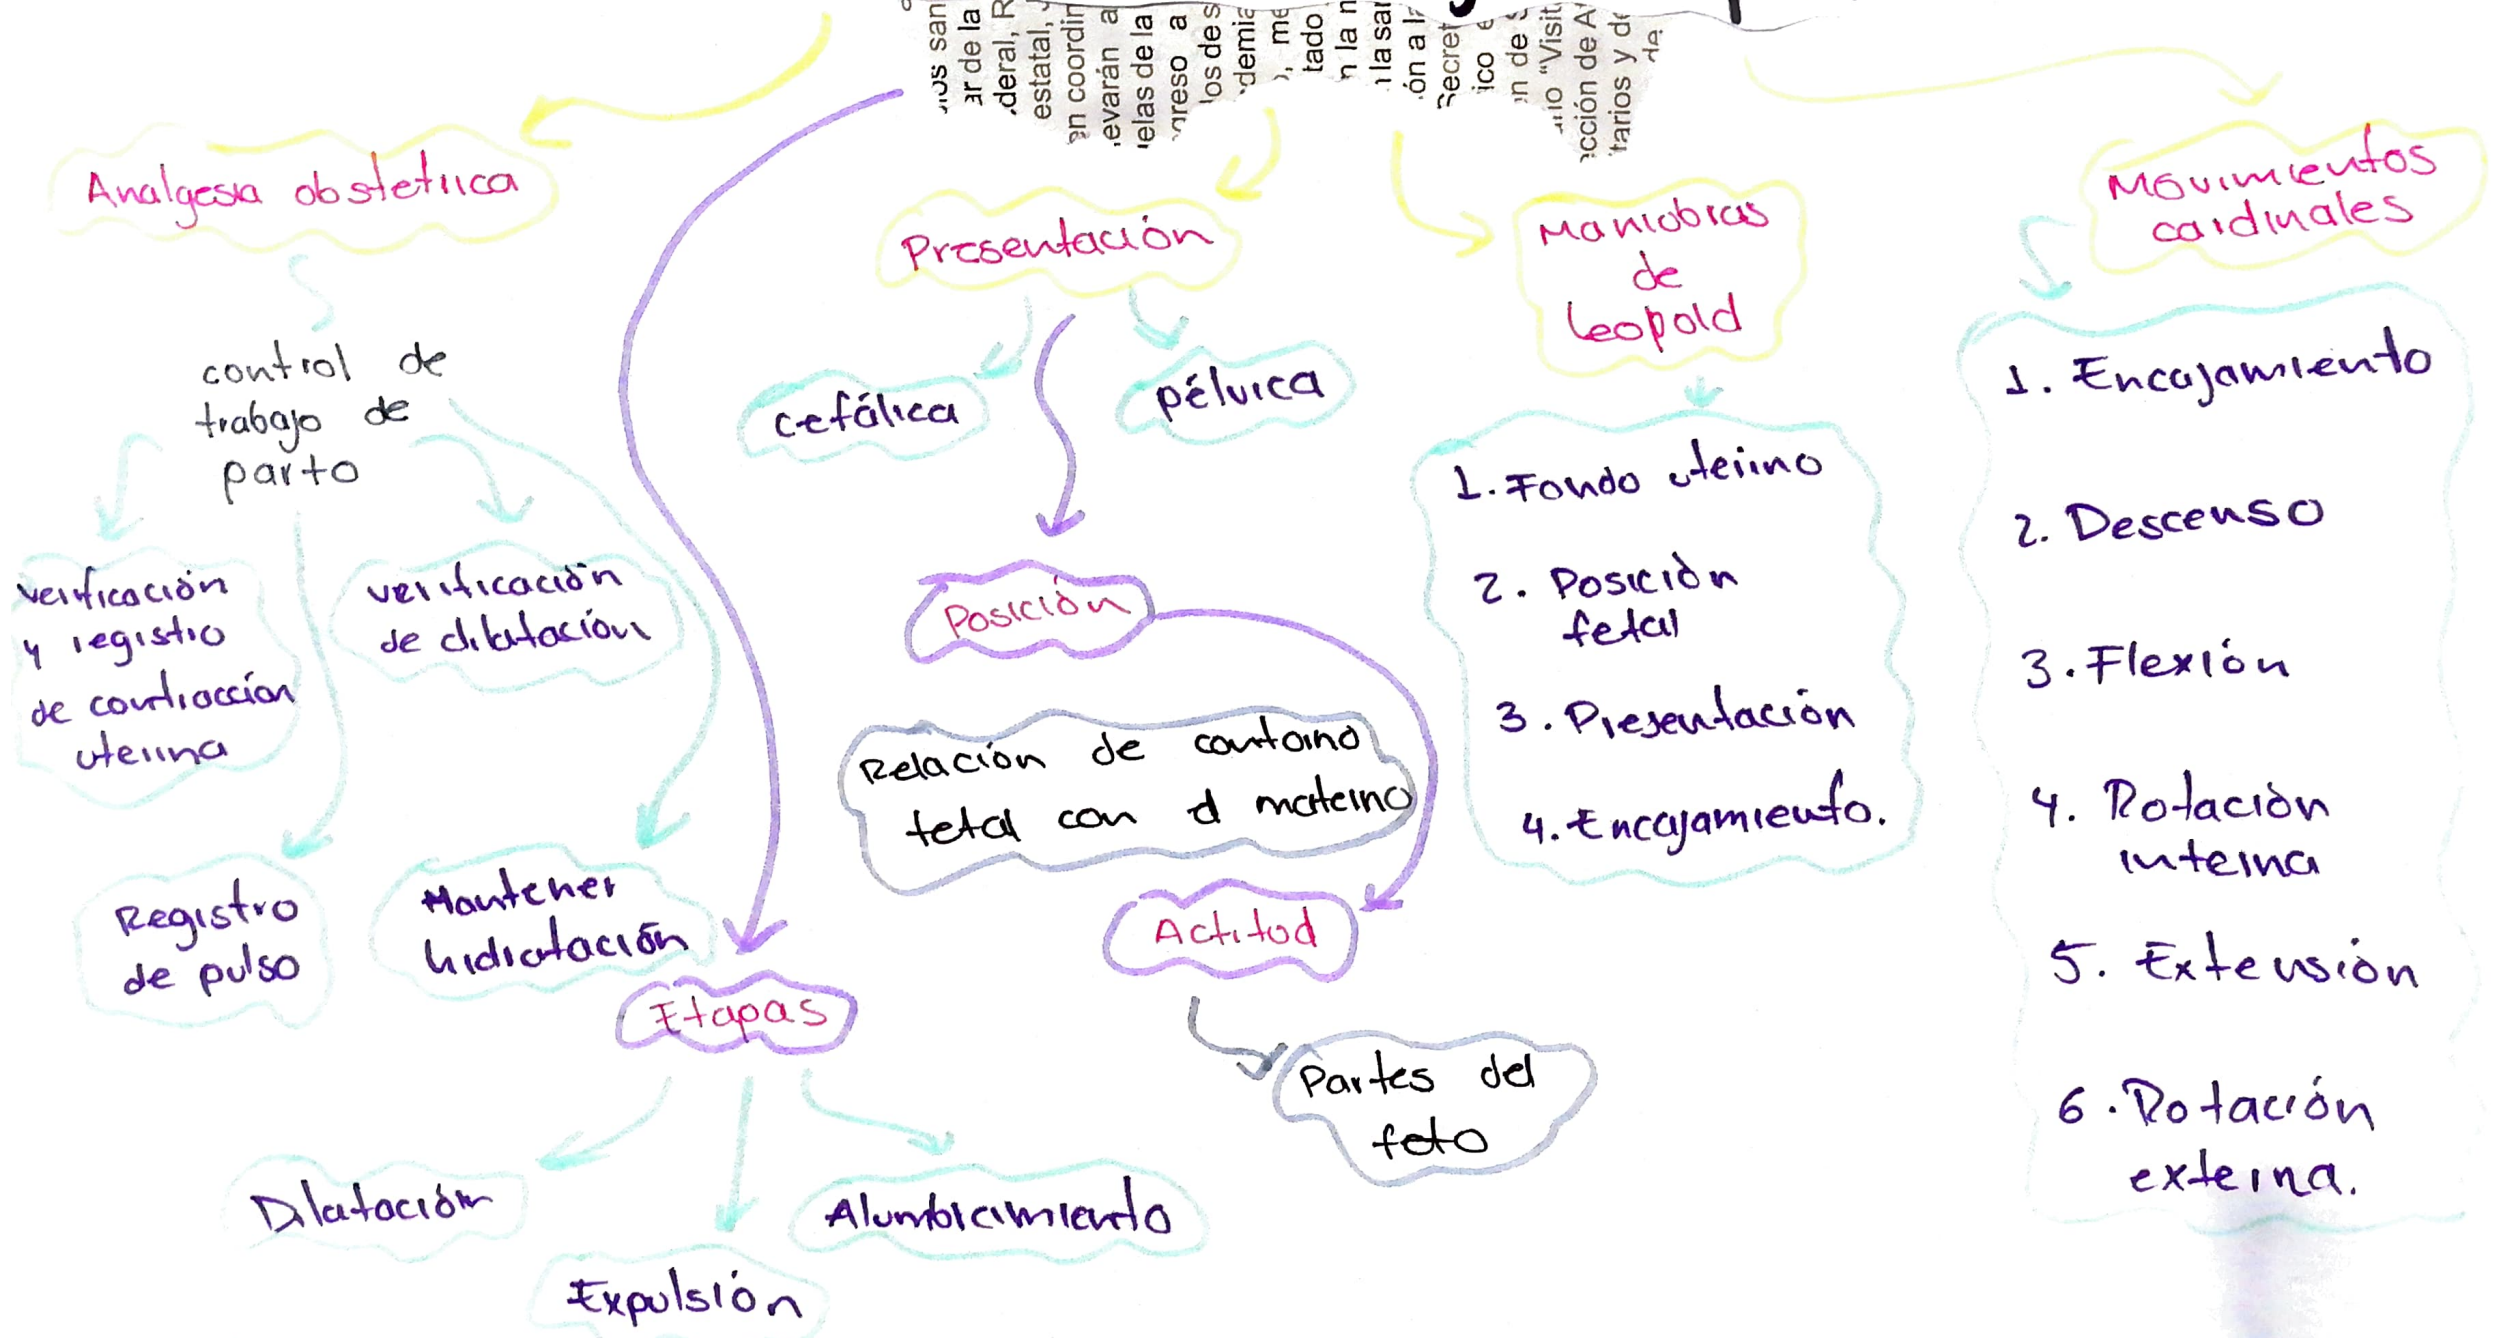 Analgesia obstetrica
control de
trabajo de
parto
verificación
y registro
de contracción
uterina
verificación
de dilatación
Registro
de pulso
Mantener
hidratación
Etapas
Dilatación
Expulsión
Alumbramiento
Presentación
cefálica
pélvica
Posición
Relación de contorno
fetal con el materno
Actitud
Partes del
feto
Maniobras
de
Leopold
1. Fondo uterino
2. Posición
fetal
3. Presentación
4. Encajamiento.
Movimientos
cardinales
1. Encajamiento
2. Descenso
3. Flexión
4. Rotación
interna
5. Extensión
6. Rotación
externa.
ar de la
estatal,
en coordin
evarán a
elas de la
los de s
tado
n la n
ico e
"Visit
cción de A
tarios y de